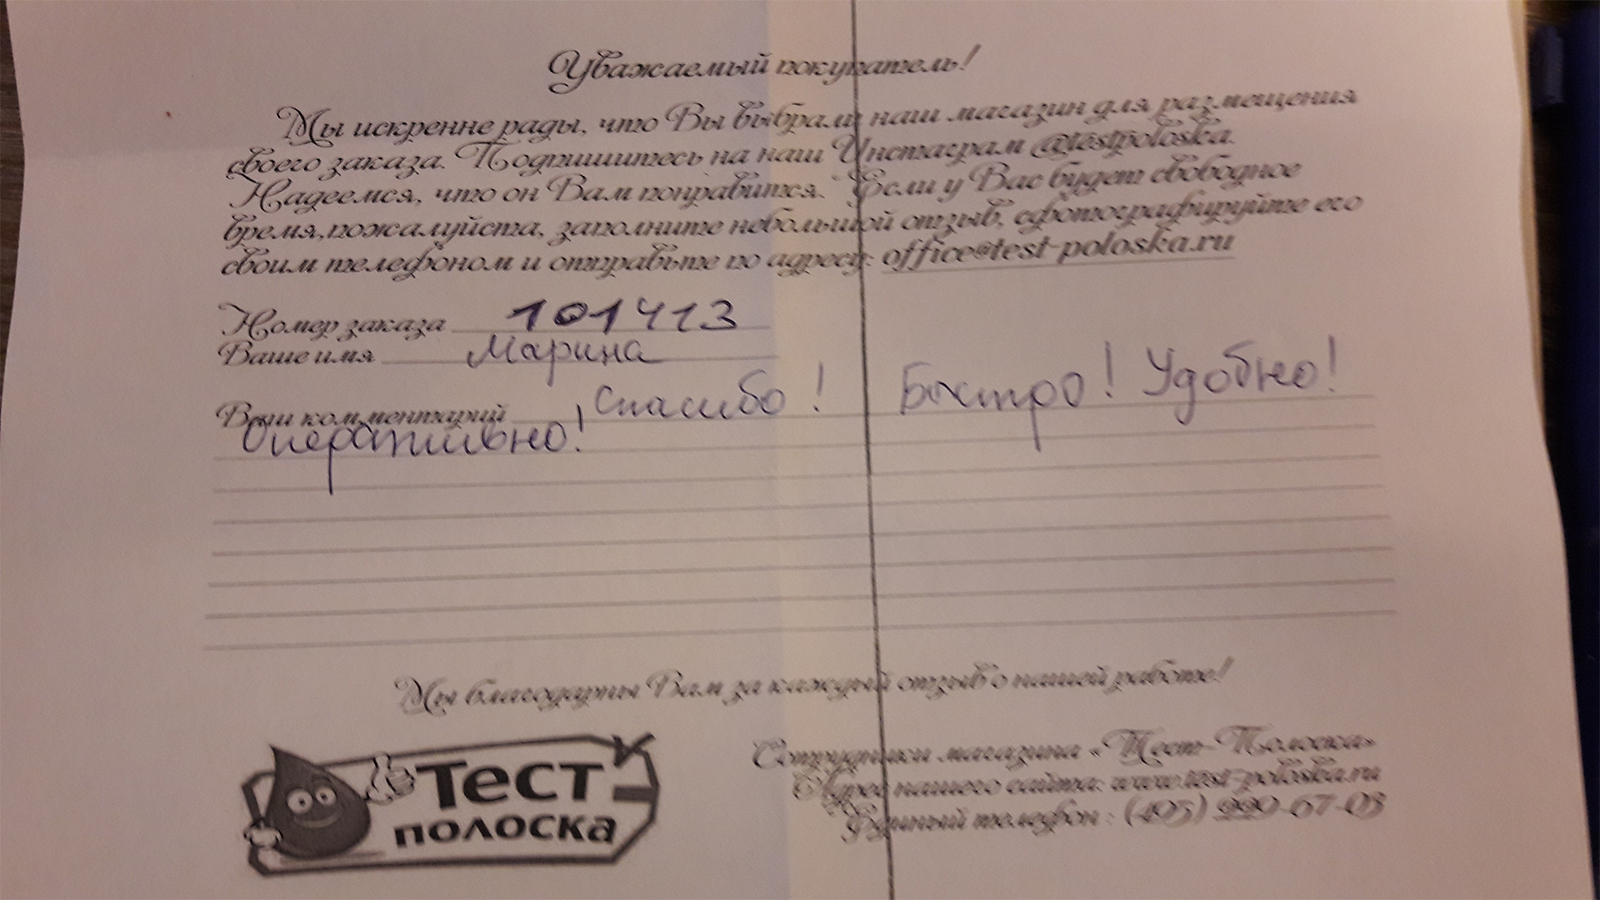 Уважаемый покупатель!
Мы искренне рады, что Вы выбрали наш магазин для размещения
своего заказа. Подпишитесь на наш Инстаграм @testpoloska.
Надеемся, что он Вам понравится. Если у Вас будет свободное
время,пожалуйста, заполните небольшой отзыв, сфотографируйте его
своим телефоном и отправьте по адресу: office@test-poloska.ru
Номер заказа 101413
Ваше имя Марина
Ваш комментарий Спасибо! Быстро! Удобно!
Оперативно!
Мы благодарны Вам за каждый отзыв о нашей работе!
Сотрудники магазина «Тест-Полоска»
Адрес нашего сайта: www.test-poloska.ru
Единый телефон : (495) 990-67-03
Тест
полоска